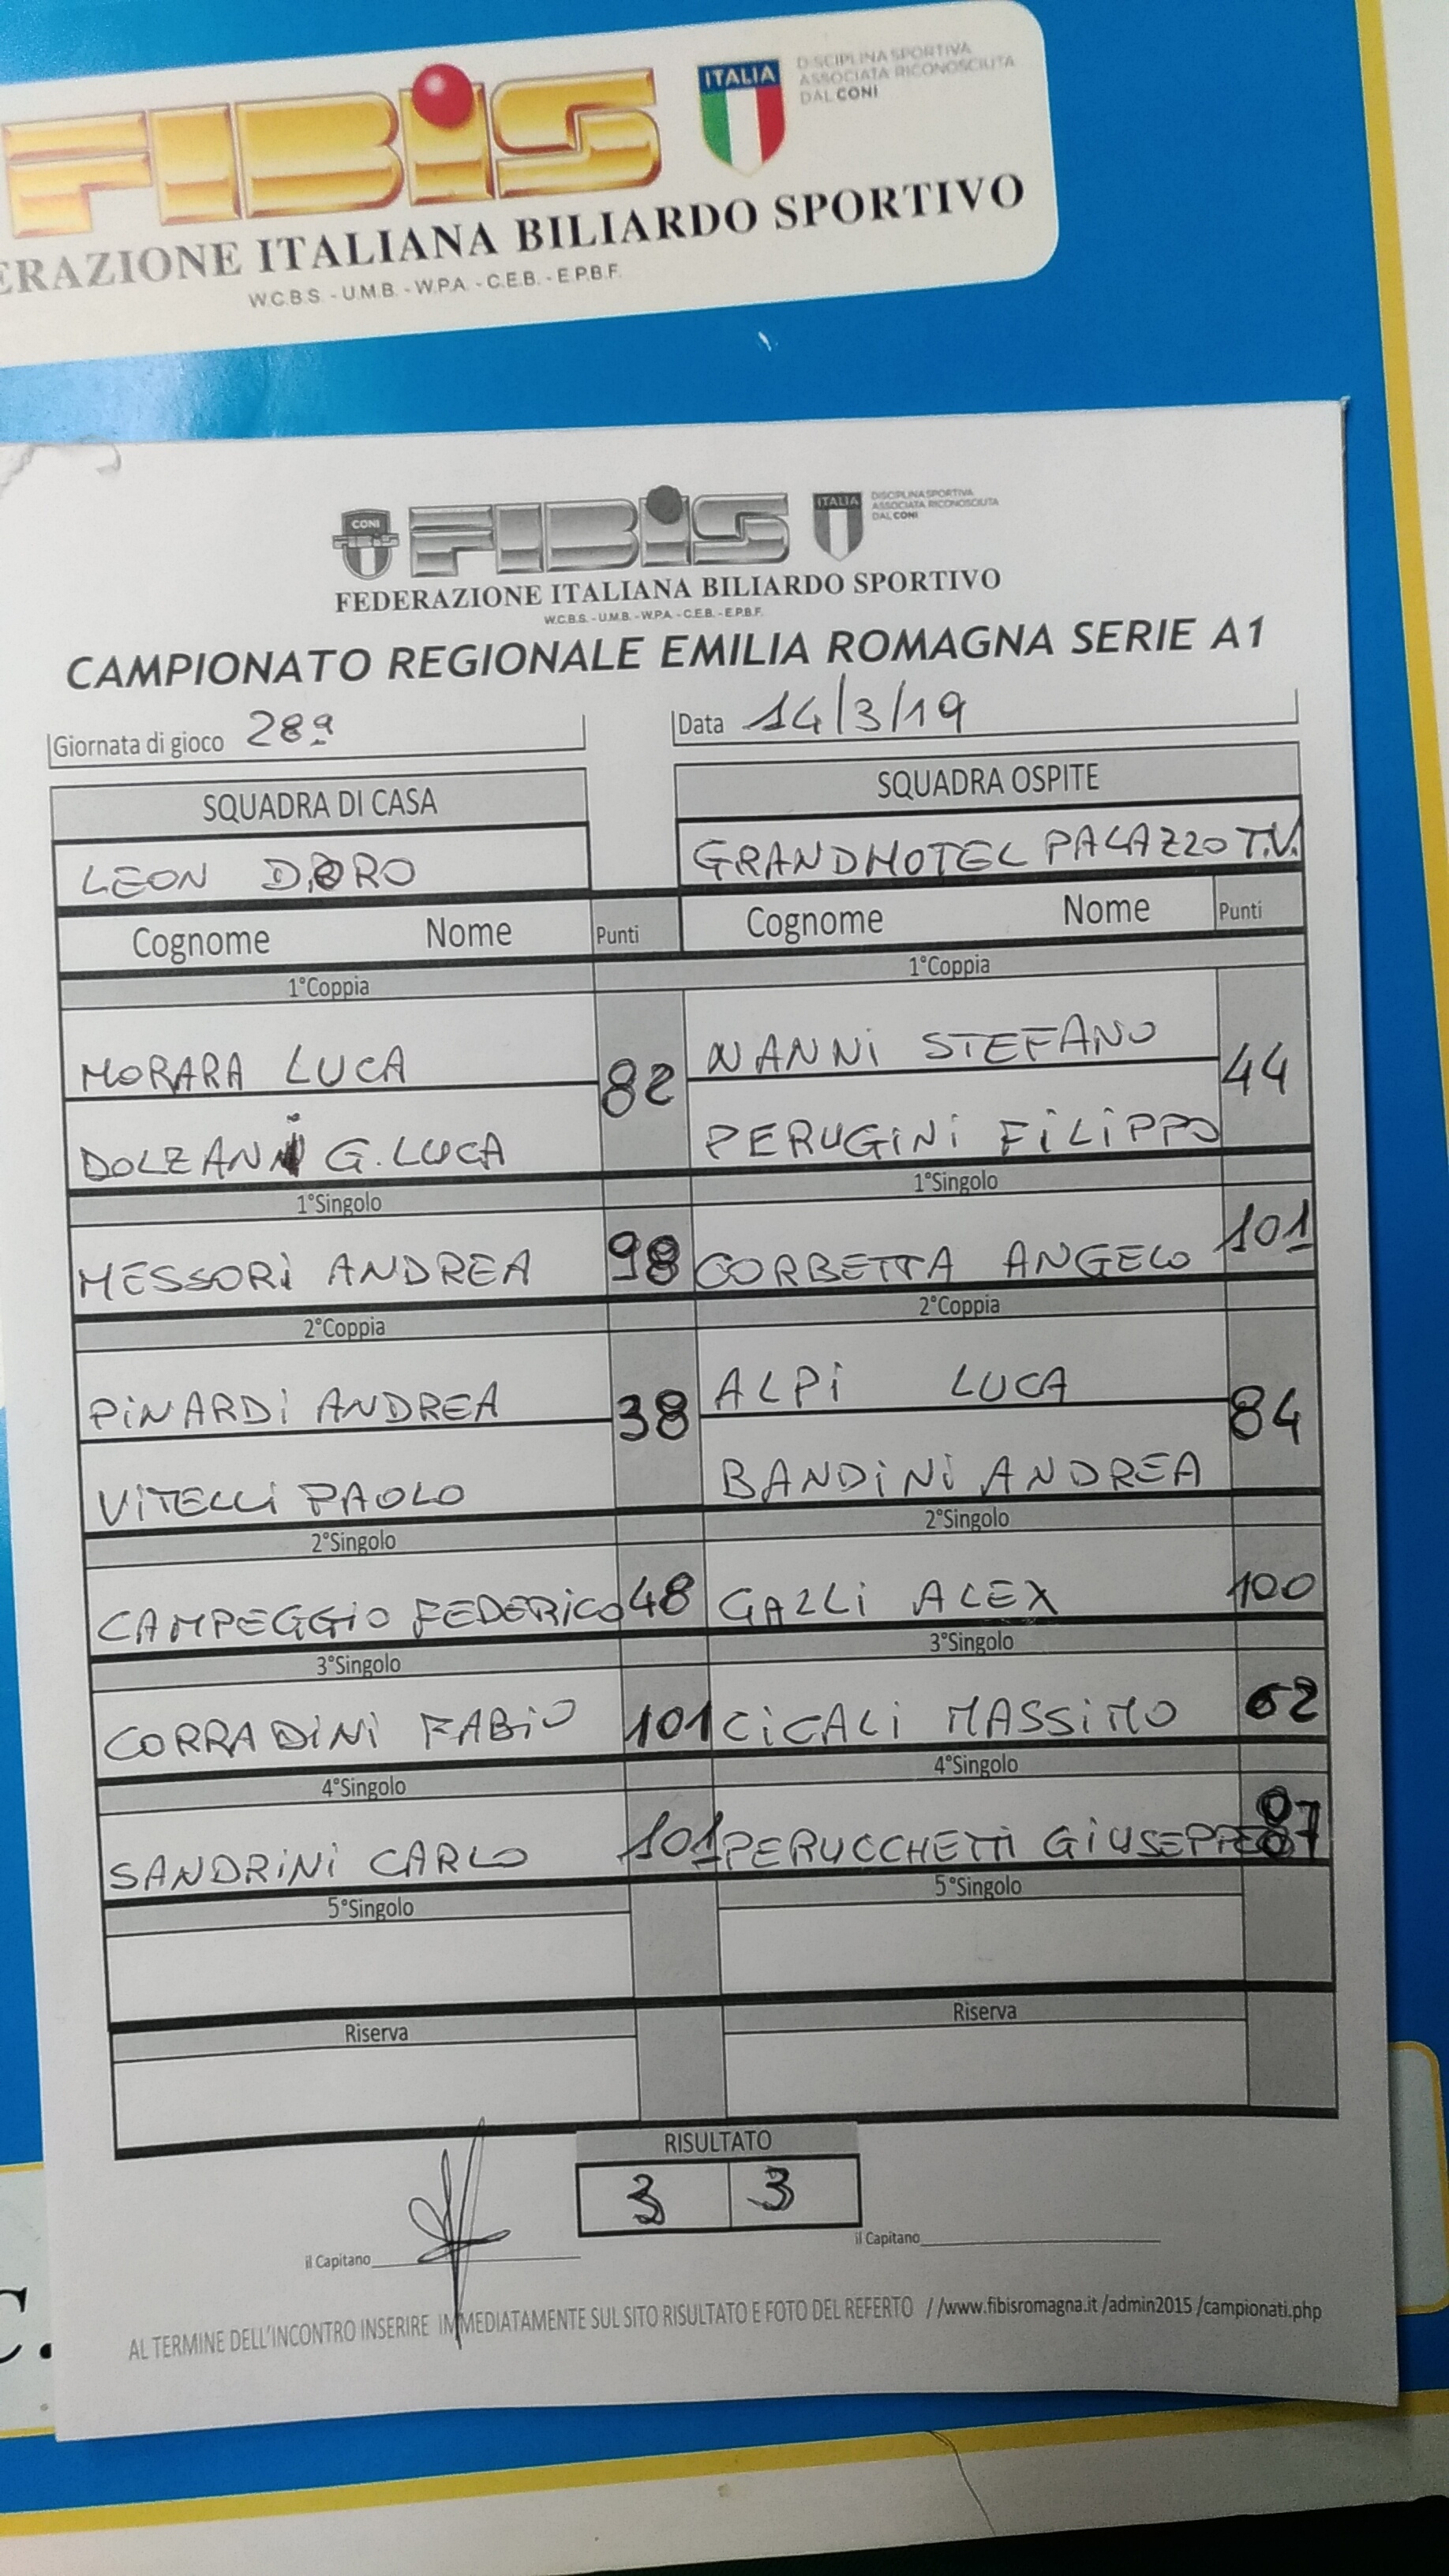 FIBiS
ITALIA
DISCIPLINA SPORTIVA
ASSOCIATA RICONOSCIUTA
DAL CONI
ERAZIONE ITALIANA BILIARDO SPORTIVO
W.C.B.S. - U.M.B. - W.P.A. - C.E.B. - E.P.B.F.
CONI
FIBiS
ITALIA
DISCIPLINA SPORTIVA
ASSOCIATA RICONOSCIUTA
DAL CONI
FEDERAZIONE ITALIANA BILIARDO SPORTIVO
W.C.B.S. - U.M.B. - W.P.A. - C.E.B. - E.P.B.F.
CAMPIONATO REGIONALE EMILIA ROMAGNA SERIE A1
Giornata di gioco 28ª Data 14/3/19
SQUADRA DI CASA SQUADRA OSPITE
LEON D'ORO GRANDHOTEL PALAZZO T.V.
Cognome Nome Punti Cognome Nome Punti
1°Coppia 1°Coppia
MORARA LUCA 82 NANNI STEFANO 44
DOLZANI G. LUCA PERUGINI FILIPPO
1°Singolo 1°Singolo
MESSORI ANDREA 98 CORBETTA ANGELO 101
2°Coppia 2°Coppia
PINARDI ANDREA 38 ALPI LUCA 84
VITELLI PAOLO BANDINI ANDREA
2°Singolo 2°Singolo
CAMPEGGIO FEDERICO 48 GALLI ALEX 100
3°Singolo 3°Singolo
CORRADINI FABIO 101 CICALI MASSIMO 62
4°Singolo 4°Singolo
SANDRINI CARLO 101 PERUCCHETTI GIUSEPPE 87
5°Singolo 5°Singolo
Riserva Riserva
RISULTATO
3 3
il Capitano il Capitano
AL TERMINE DELL'INCONTRO INSERIRE IMMEDIATAMENTE SUL SITO RISULTATO E FOTO DEL REFERTO //www.fibisromagna.it /admin2015 /campionati.php
C.